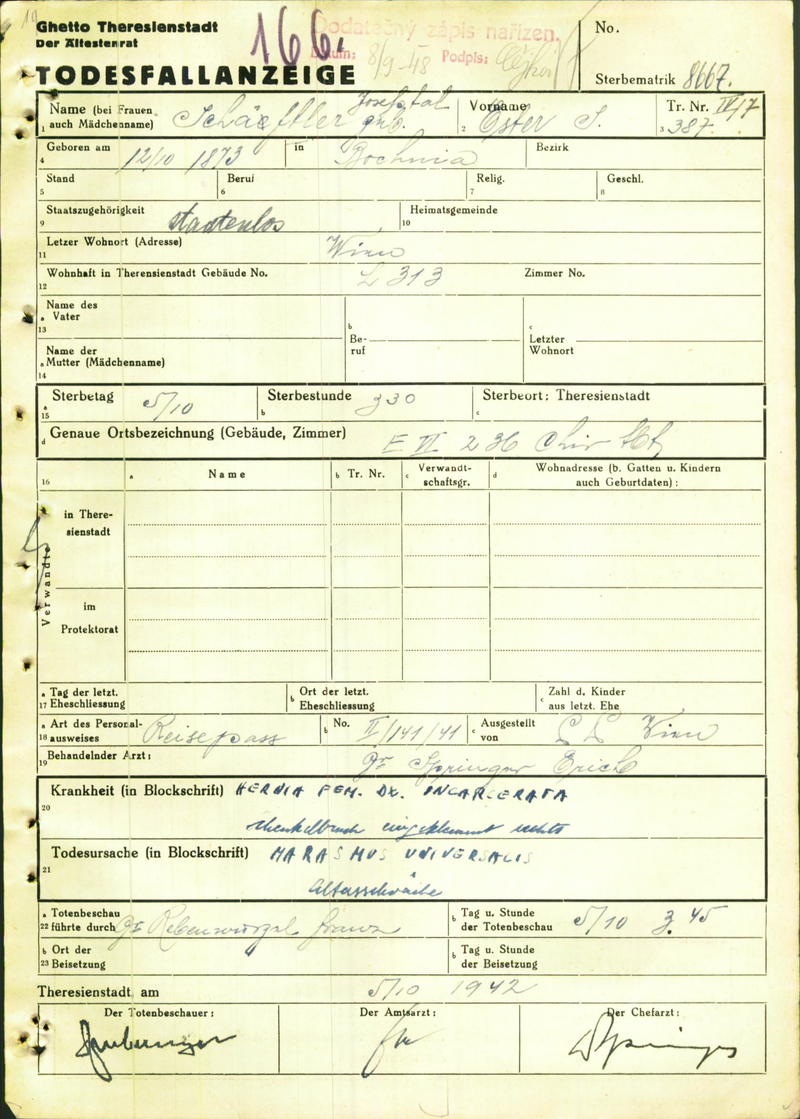 Ghetto Theresienstadt
Der Ältestenrat
TODESFALLANZEIGE
166.
Dodatečný zápis nařízen.
Datum: 8/9-48 Podpis:
No.
Sterbematrik 8667.
Name (bei Frauen auch Mädchenname) Schäftler Josefstal geb.
1
Vorname Ester S.
2
Tr. Nr. IV/7
3 387.
Geboren am 12/10 1873 in Bochnia Bezirk
4
Stand Beruf Relig. Geschl.
5 6 7 8
Staatszugehörigkeit staatenlos Heimatsgemeinde
9 10
Letzer Wohnort (Adresse) Wien
11
Wohnhaft in Theresienstadt Gebäude No. L 313 Zimmer No.
12
Name des
a Vater
13
b Be-
ruf
c Letzter
Wohnort
Name der
a Mutter (Mädchenname)
14
Sterbetag 5/10 Sterbestunde 330 Sterbeort: Theresienstadt
a 15 b c
d Genaue Ortsbezeichnung (Gebäude, Zimmer) E VI 236 Chir
16 a Name b Tr. Nr. c Verwandt-
schaftsgr. d Wohnadresse (b. Gatten u. Kindern
auch Geburtdaten) :
Verwandte
in There-
sienstadt
im
Protektorat
a Tag der letzt.
17 Eheschliessung
b Ort der letzt.
Eheschliessung
c Zahl d. Kinder
aus letzt. Ehe
a Art des Personal-
18 ausweises Reisepass
b No. II/141/41
c Ausgestellt
von Wien
Behandelnder Arzt: Dr Springer Erich
19
Krankheit (in Blockschrift) HERNIA FEM. DX. INCARCERATA
20
Schenkelbruch eingeklemmt rechts
Todesursache (in Blockschrift) MARASMUS UNIVERSALIS
21
Altersschwäche
a Totenbeschau
22 führte durch Dr Rebenwurzel Franz
b Tag u. Stunde
der Totenbeschau 5/10 3.45
b Ort der
23 Beisetzung
b Tag u. Stunde
der Beisetzung
Theresienstadt, am 5/10 1942
Der Totenbeschauer: Der Amtsarzt: Der Chefarzt: